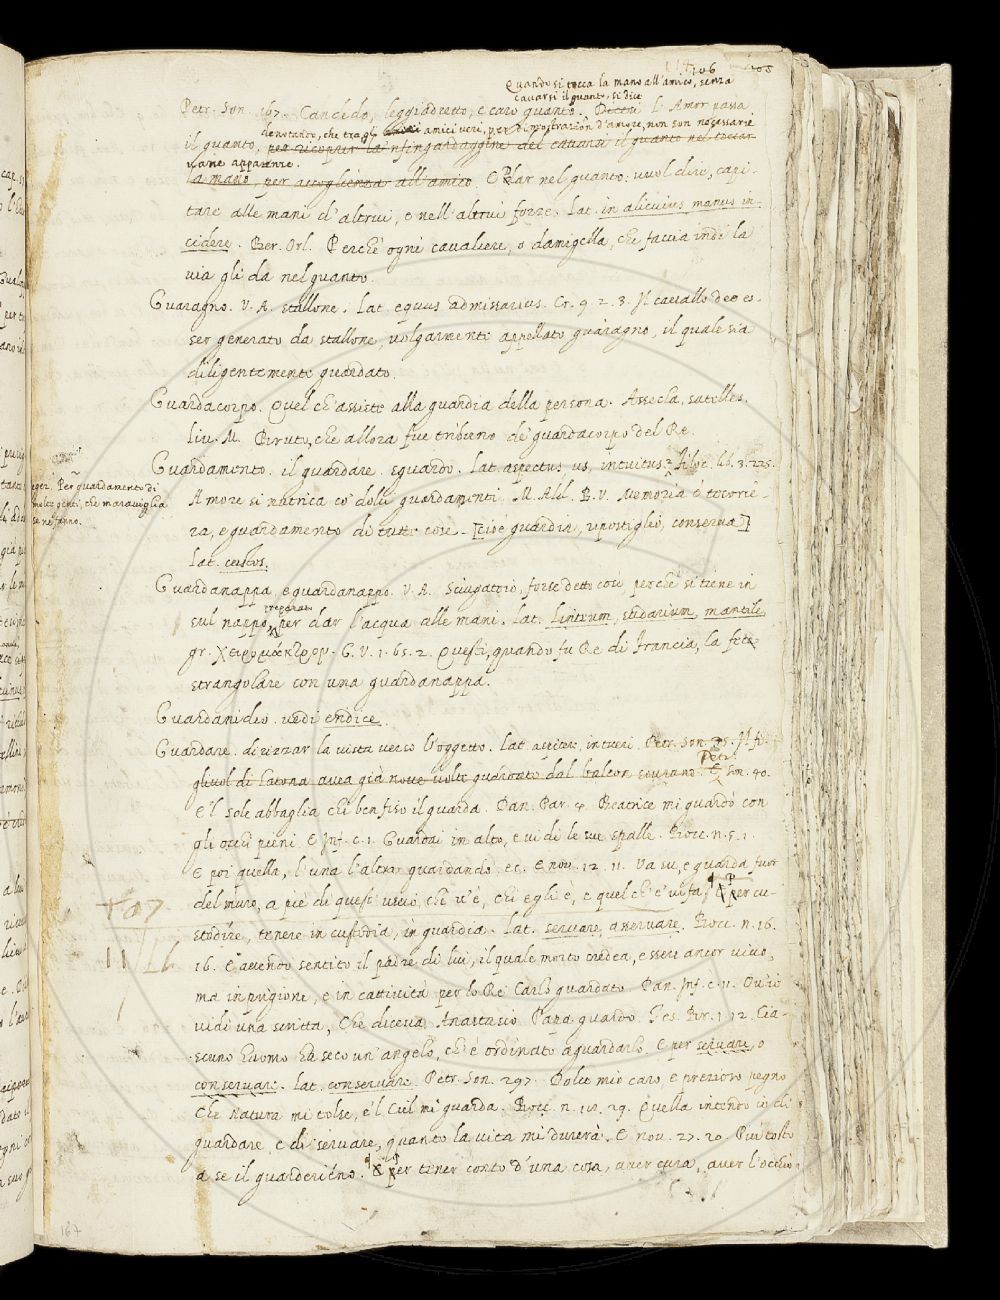 106
Quando si tocca la mano all'amico, senza
cavarsi il guanto, si dice
Petr. Son. 167. Candido, leggiadretto, e caro guanto. l'Amor passa
denotando, che tra gli amici veri, per dimostrazion d'amore, non son necessarie
il guanto, per ricoprir la infingardaggine del cavarsi il guanto nel toccar
vane apparenze.
la mano, per accoglienza all'amico. E Dar nel guanto: vuol dire, capi-
tare alle mani d'altrui, e nell'altrui forze. Lat. in alicuius manus in-
cidere. Ber. Orl. Perchè ogni cavaliere, o damigella, che faccia indi la
via gli da nel guanto.
Guaragno. V. A. stallone. Lat. equus admissarius. Cr. 9. 2. 3. Il cavallo dee es-
ser generato da stallone, volgarmente appellato guaragno, il quale sia
diligentemente guardato.
Guardacorpo. Quel ch'assiste alla guardia della persona. Assecla, satelles.
Liv. M. Bruto, che allora fue tribuno de' guardacorpo del Re.
Guardamento. il guardare. sguardo. Lat. aspectus us, intuitus. Filoc. lib. 3. 225.
Per guardamento di
molte genti, che maraviglia
se ne fanno.
Amore si nutrica co' dolci guardamenti. M. Ald. B. V. Memoria è tesorie-
ra, e guardamento di tutte cose. [cioè guardia, ripostiglio, conserva]
Lat. custos.
Guardanappa, e guardanappo. V. A. Sciugatoio, forse detto così, perchè si tiene in
preparato
sul nappo, per dar l'acqua alle mani. Lat. Linteum, sudarium, mantile,
gr. χειρόμακτρον. G. V. 1. 65. 2. Questi, quando fu Re di Francia, la fece
strangolare con una guardanappa.
Guardanidio. vedi endice.
Guardare. dirizzar la vista verso l'oggetto. Lat. aspicere, intueri. Petr. Son. 35. Il fi-
Petr.
gliuol di Latona avea già nove volte guardato dal balcon sovrano. E Son. 40.
E'l sole abbaglia chi ben fiso il guarda. Dan. Par. 4. Beatrice mi guardò con
gli occhi pieni. E Inf. c. 1. Guardai in alto, e vidi le sue spalle. Bocc. n. 5. 1.
E poi quella, l'una l'altra guardando ec. E nov. 12. 11. Va su, e guarda fuor
del muro, a piè di quest'uscio, chi v'è, chi egli è, e quel ch'e' vi fa. E per cu-
stodire, tenere in custodia, in guardia. Lat. servare, asservare. Bocc. n. 16.
16. E avendo sentito il padre di lui, il quale morto credea, essere ancor vivo,
ma in prigione, e in cattività per lo Re Carlo guardato. Dan. Inf. c. 11. Ov'io
vidi una scritta, Che diceva Anastasio Papa guardo. Tes. Br. 1. 12. Cia-
scuno huomo ha seco un'angelo, ch'è ordinato a guardarlo. E per servare, o
conservare. Lat. conservare. Petr. Son. 297. Dolce mio caro, e prezioso pegno
Che Natura mi tolse, e'l Ciel mi guarda. Bocc. n. 29. Quella intendo io di
guardare, e di servare, quanto la vita mi durerà. E nov. 27. 20. Piu tosto
a se il guarderieno. E per tener conto d'una cosa, aver cura, aver l'occhio
167